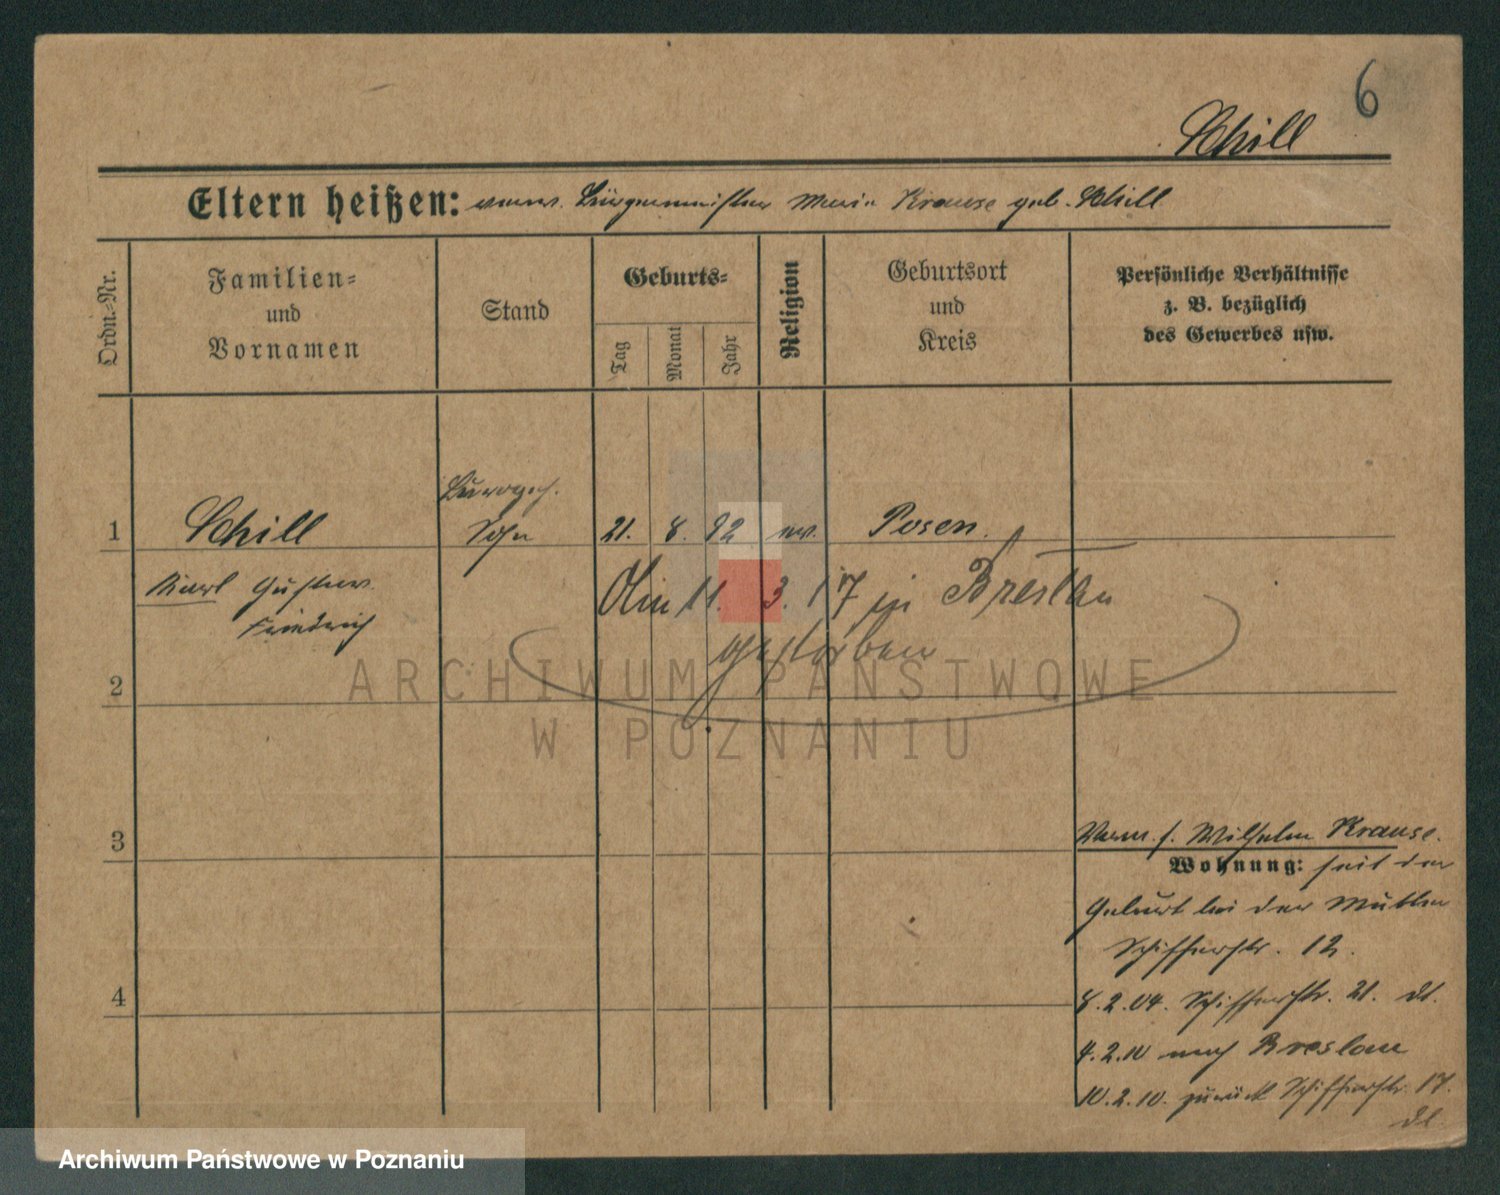 6
Schill
Eltern heißen: verw. Bürgermeister Marie Krause geb. Schill
Ordn.-Nr.
Familien-
und
Vornamen
Stand
Geburts-
Tag
Monat
Jahr
Religion
Geburtsort
und
Kreis
Persönliche Verhältnisse
z. B. bezüglich
des Gewerbes usw.
1
Schill
Sohn
21. 8. 92 ev. Posen.
Karl Gustav
Friedrich
Am 11. 3. 17 in Breslau
gestorben
2
ARCHIWUM PAŃSTWOWE
W POZNANIU
3
Vorm. f. Wilhelm Krause.
Wohnung: seit der
Geburt bei der Mutter
Schifferstr. 12.
4
8.2.04. Schifferstr. 21. dl.
4.2.10 nach Breslau
10.2.10. zurück Schifferstr. 17.
dl
Archiwum Państwowe w Poznaniu